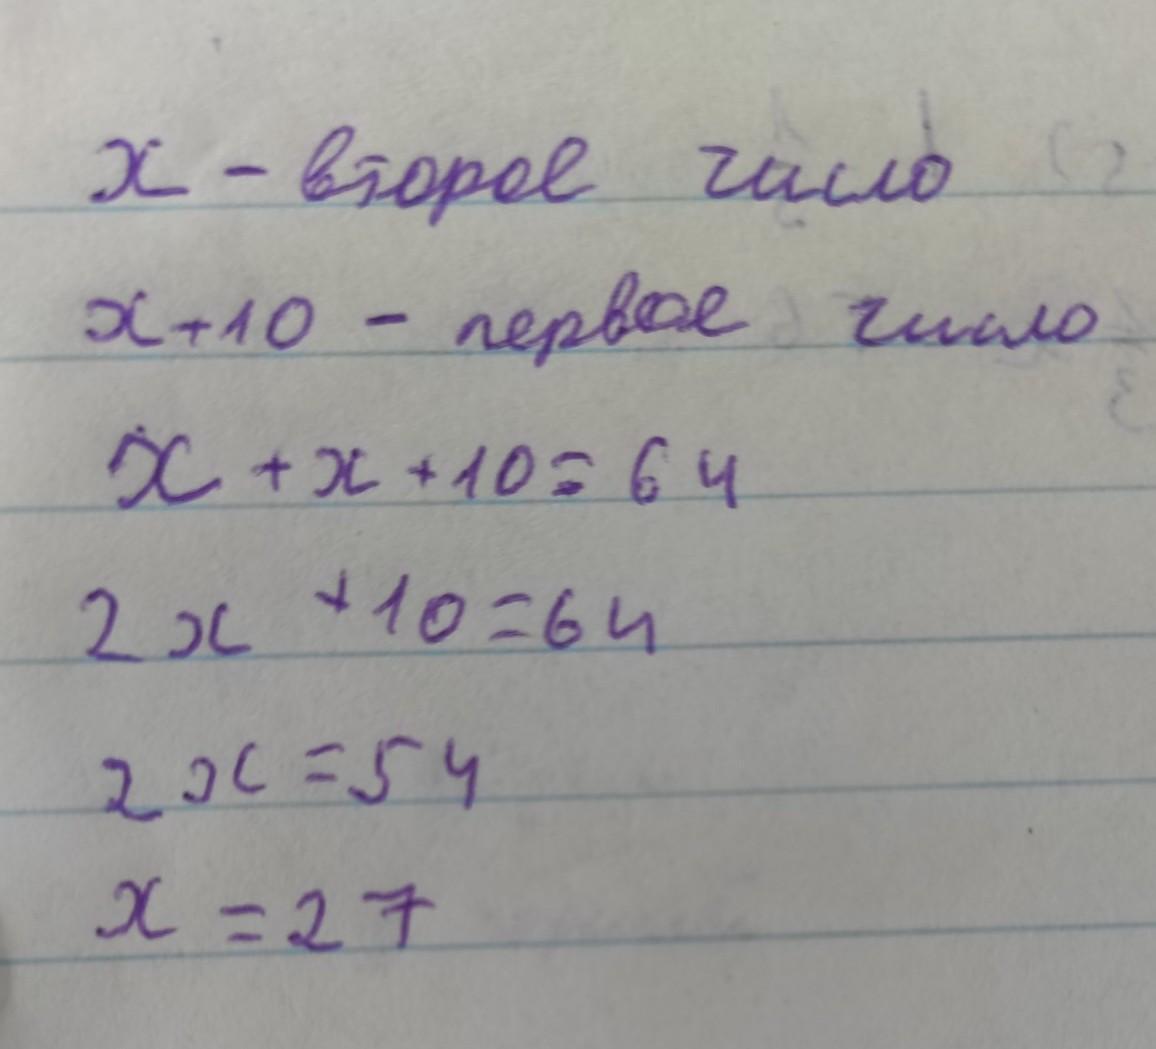 x - второе число
x+10 - первое число
x + x + 10 = 64
2x + 10 = 64
2x = 54
x = 27